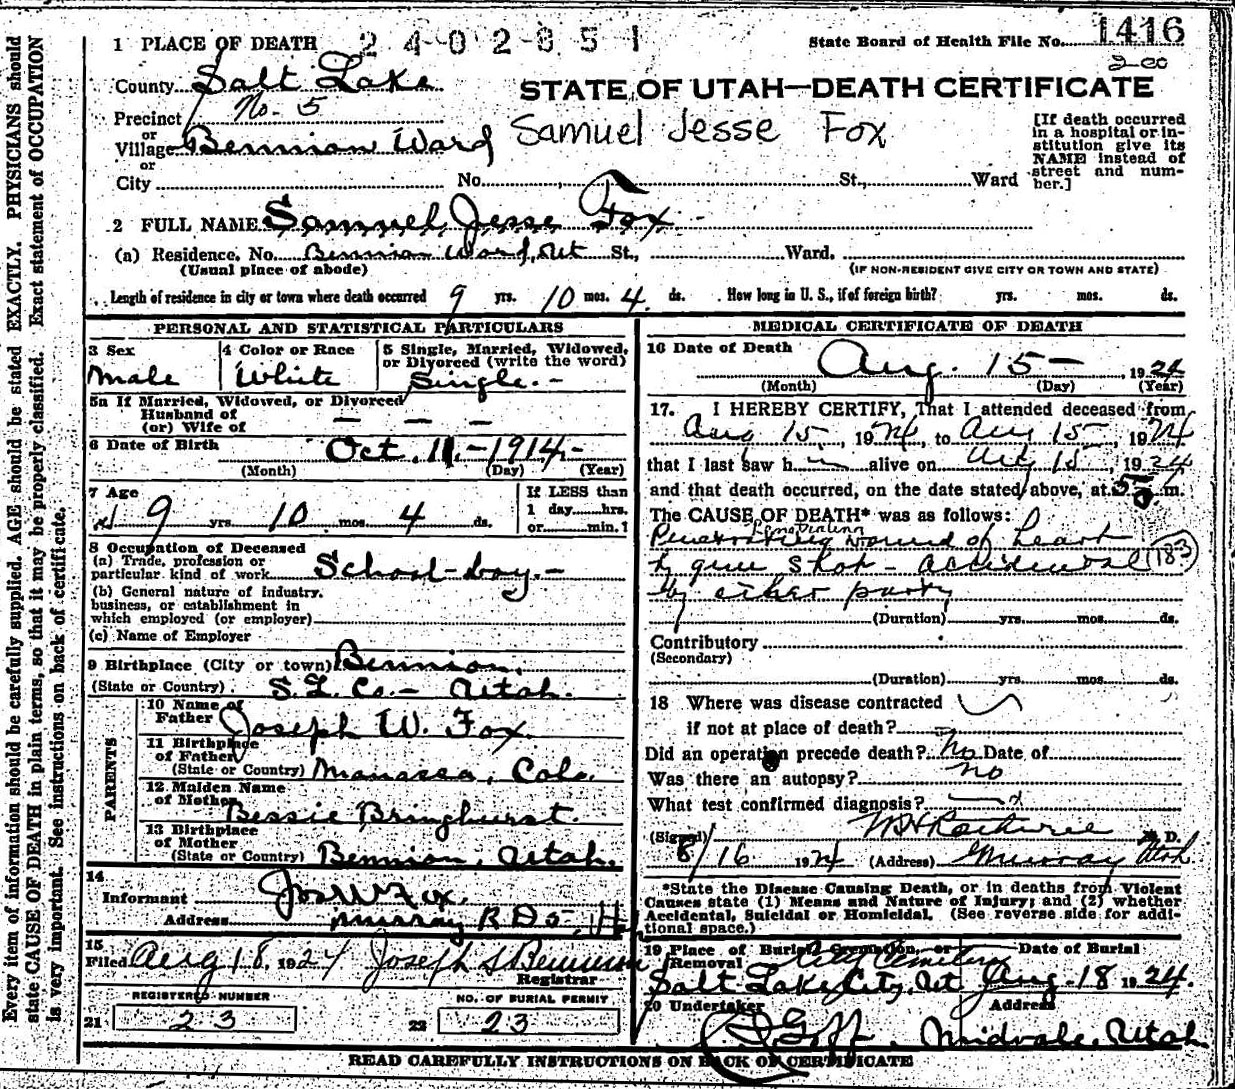 1 PLACE OF DEATH 2402851
State Board of Health File No. 1416
2-00
County Salt Lake
STATE OF UTAH—DEATH CERTIFICATE
Precinct No. 5
or
Village Bennion Ward
Samuel Jesse Fox
or
City No. St., Ward
[If death occurred
in a hospital or in-
stitution give its
NAME instead of
street and num-
ber.]
2 FULL NAME Samuel Jesse Fox
(a) Residence. No. Bennion Ward, Ut St., Ward.
(Usual place of abode) (IF NON-RESIDENT GIVE CITY OR TOWN AND STATE)
Length of residence in city or town where death occurred 9 yrs. 10 mos. 4 ds. How long in U. S., if of foreign birth? yrs. mos. ds.
PERSONAL AND STATISTICAL PARTICULARS
3 Sex
Male
4 Color or Race
White
5 Single, Married, Widowed,
or Divorced (write the word)
Single.-
5a If Married, Widowed, or Divorced
Husband of
(or) Wife of — — —
6 Date of Birth Oct. 11.-1914-
(Month) (Day) (Year)
7 Age
9 yrs. 10 mos. 4 ds.
If LESS than
1 day....hrs.
or....min.
8 Occupation of Deceased
(a) Trade, profession or
particular kind of work School-boy.-
(b) General nature of industry,
business, or establishment in
which employed (or employer)
(c) Name of Employer
9 Birthplace (City or town) Bennion,
(State or Country) S. L. Co.- Utah.
PARENTS
10 Name of
Father Joseph W. Fox.
11 Birthplace
of Father
(State or Country) Manassa, Colo.
12 Maiden Name
of Mother Bessie Bringhurst.
13 Birthplace
of Mother
(State or Country) Bennion, Utah.
14
Informant Jos W Fox.
Address Murray R D 5,
15
Filed Aug 18, 1924 Joseph S Bennion
Registrar
REGISTERED NUMBER
21 23
NO. OF BURIAL PERMIT
22 23
MEDICAL CERTIFICATE OF DEATH
16 Date of Death Aug. 15- 1924
(Month) (Day) (Year)
17. I HEREBY CERTIFY, That I attended deceased from
Aug 15, 1924, to Aug 15, 1924
that I last saw h alive on Aug 15, 1924
and that death occurred, on the date stated above, at 5 m.
The CAUSE OF DEATH* was as follows:
Penetrating wound of heart
by gun shot - accidental (183)
by other party
(Duration) yrs. mos. ds.
Contributory
(Secondary)
(Duration) yrs. mos. ds.
18 Where was disease contracted
if not at place of death?
Did an operation precede death? No Date of
Was there an autopsy? no
What test confirmed diagnosis?
(Signed) M. D.
8/16 1924 (Address) Murray Utah
*State the Disease Causing Death, or in deaths from Violent
Causes state (1) Means and Nature of Injury; and (2) whether
Accidental, Suicidal or Homicidal. (See reverse side for addi-
tional space.)
19 Place of Burial, Cremation, or Date of Burial
Removal City Cemetery
Salt Lake City, Ut Aug. 18 1924.
20 Undertaker Address
Goff, Midvale, Utah
READ CAREFULLY INSTRUCTIONS ON BACK OF CERTIFICATE
Every item of information should be carefully supplied. AGE should be stated EXACTLY. PHYSICIANS should
state CAUSE OF DEATH in plain terms, so that it may be properly classified. Exact statement of OCCUPATION
is very important. See instructions on back of certificate.